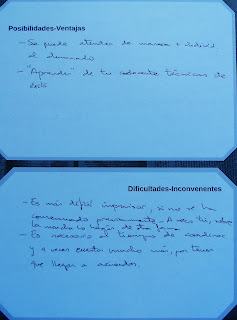 Posibilidades-Ventajas
- Se puede atender de manera + individ.
al alumnado
- "Aprender" de tu docente técnicas de
Dificultades-Inconvenientes
- Es más difícil improvisar, si no se ha
consensuado previamente. A veces tú, sobre
la marcha lo harías de otra forma
- Es necesario el tiempo de coordinar
y a veces cuesta mucho más, por tener
que llegar a acuerdos.